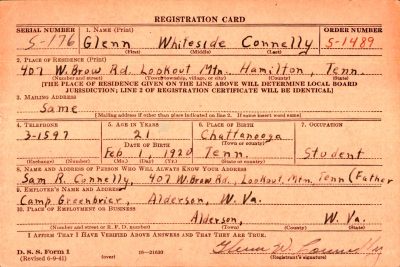 REGISTRATION CARD
SERIAL NUMBER 1. NAME (Print) ORDER NUMBER
S-176 Glenn Whiteside Connelly S-1489
(First) (Middle) (Last)
2. PLACE OF RESIDENCE (Print)
407 W. Brow Rd. Lookout Mtn. Hamilton, Tenn.
(Number and street) (Town, township, village, or city) (County) (State)
[THE PLACE OF RESIDENCE GIVEN ON THE LINE ABOVE WILL DETERMINE LOCAL BOARD
JURISDICTION; LINE 2 OF REGISTRATION CERTIFICATE WILL BE IDENTICAL]
3. MAILING ADDRESS
Same
[Mailing address if other than place indicated on line 2. If same insert word same]
4. TELEPHONE 5. AGE IN YEARS 6. PLACE OF BIRTH 7. OCCUPATION
3-1597 21 Chattanooga
DATE OF BIRTH (Town or county)
Feb 1, 1920 Tenn. Student
(Exchange) (Number) (Mo.) (Day) (Yr.) (State or country)
8. NAME AND ADDRESS OF PERSON WHO WILL ALWAYS KNOW YOUR ADDRESS
Sam R. Connelly, 407 W. Brow Rd., Lookout Mtn. Tenn (Father
9. EMPLOYER'S NAME AND ADDRESS
Camp Greenbrier, Alderson, W. Va.
10. PLACE OF EMPLOYMENT OR BUSINESS
Alderson, W. Va.
(Number and street or R. F. D. number) (Town) (County) (State)
I AFFIRM THAT I HAVE VERIFIED ABOVE ANSWERS AND THAT THEY ARE TRUE.
D. S. S. Form 1 Glenn W. Connelly
(Revised 6-9-41) (over) 16-21630 (Registrant's signature)